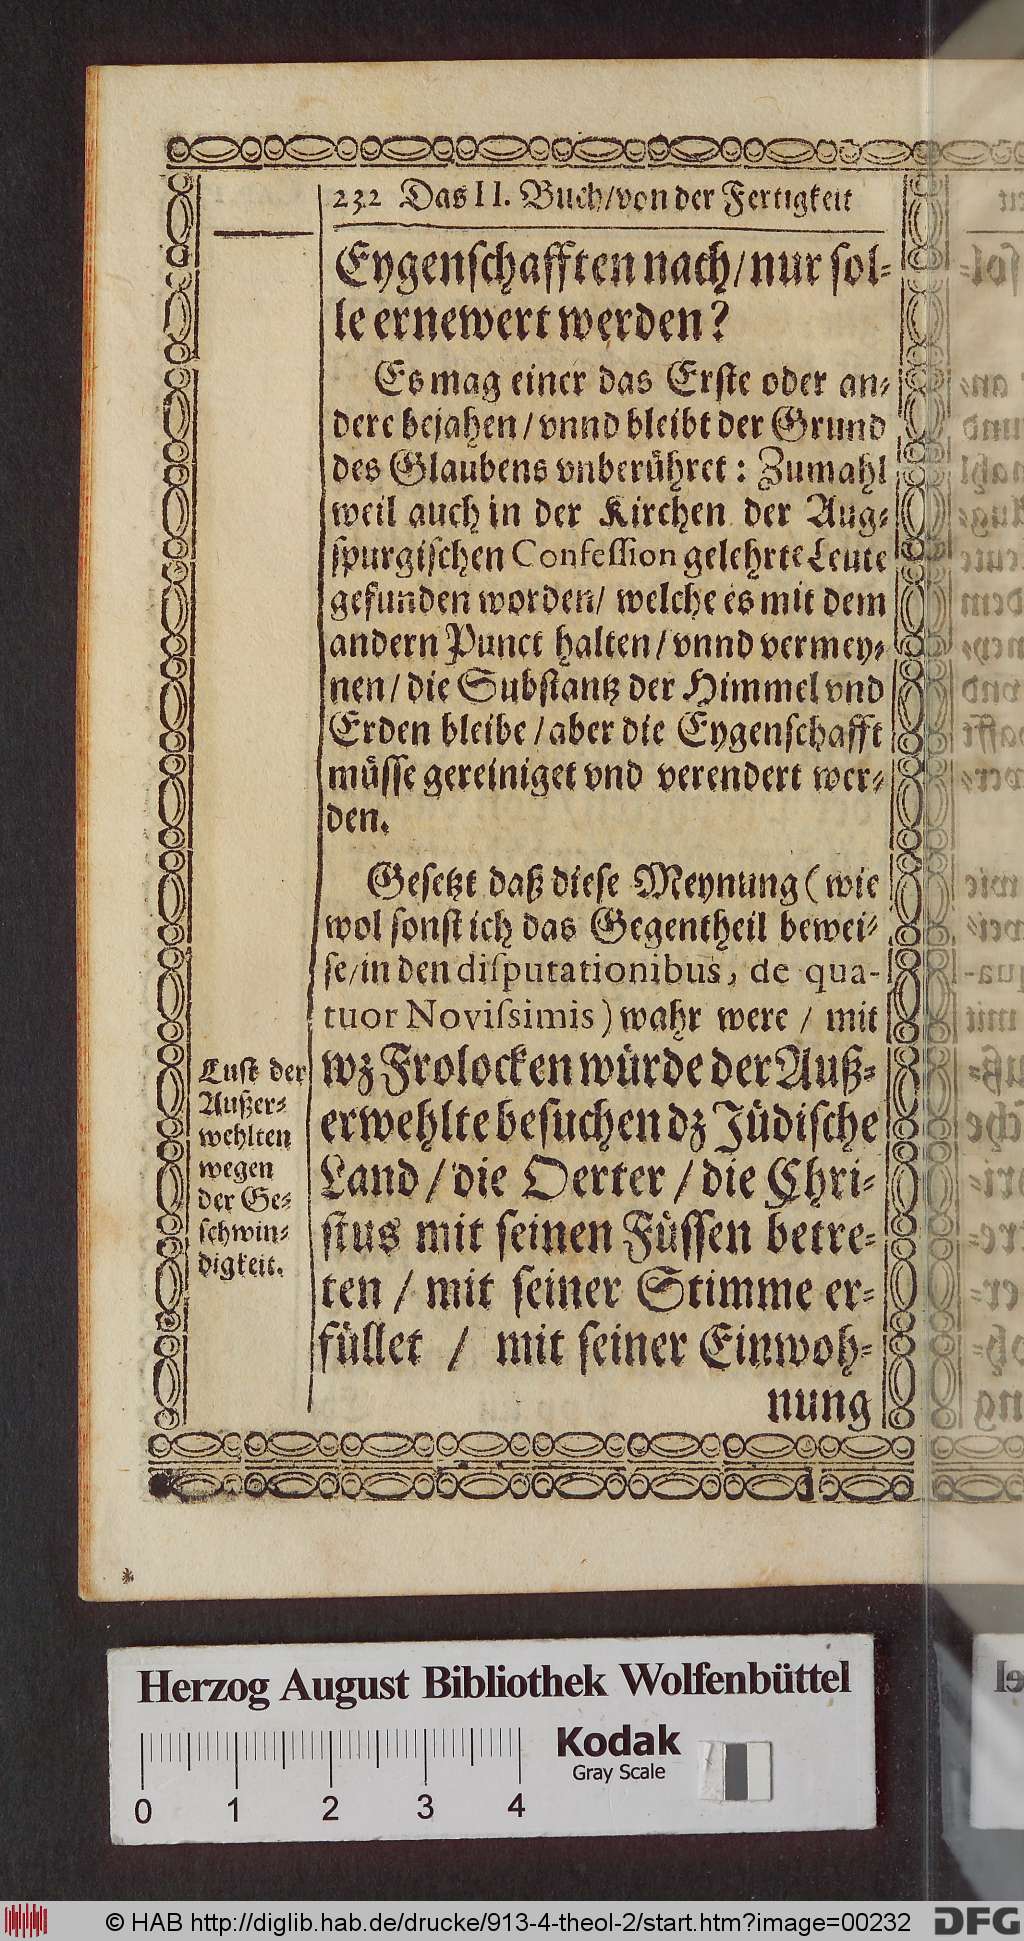 232 Das II. Buch/von der Fertigkeit
Eygenschafften nach/nur sol-
le ernewert werden?
Es mag einer das Erste oder an-
dere bejahen/vnnd bleibt der Grund
des Glaubens vnberühret: Zumahl
weil auch in der Kirchen der Aug-
spurgischen Confession gelehrte Leute
gefunden worden/ welche es mit dem
andern Punct halten/vnnd vermey-
nen/die Substantz der Himmel vnd
Erden bleibe/aber die Eygenschafft
müsse gereiniget vnd verendert wer-
den.
Gesetzt daß diese Meynung (wie
wol sonst ich das Gegentheil bewei-
se/in den disputationibus, de qua-
tuor Novissimis) wahr were / mit
wz Frolocken würde der Auß-
erwehlte besuchen dz Jüdische
Land/die Oerter/die Chri-
stus mit seinen Füssen betre-
ten/mit seiner Stimme er-
füllet / mit seiner Einwoh-
nung
Lust der
Außer-
wehlten
wegen
der Ge-
schwin-
digkeit.
Herzog August Bibliothek Wolfenbüttel
Kodak
Gray Scale
0 1 2 3 4
© HAB http://diglib.hab.de/drucke/913-4-theol-2/start.htm?image=00232
DFG